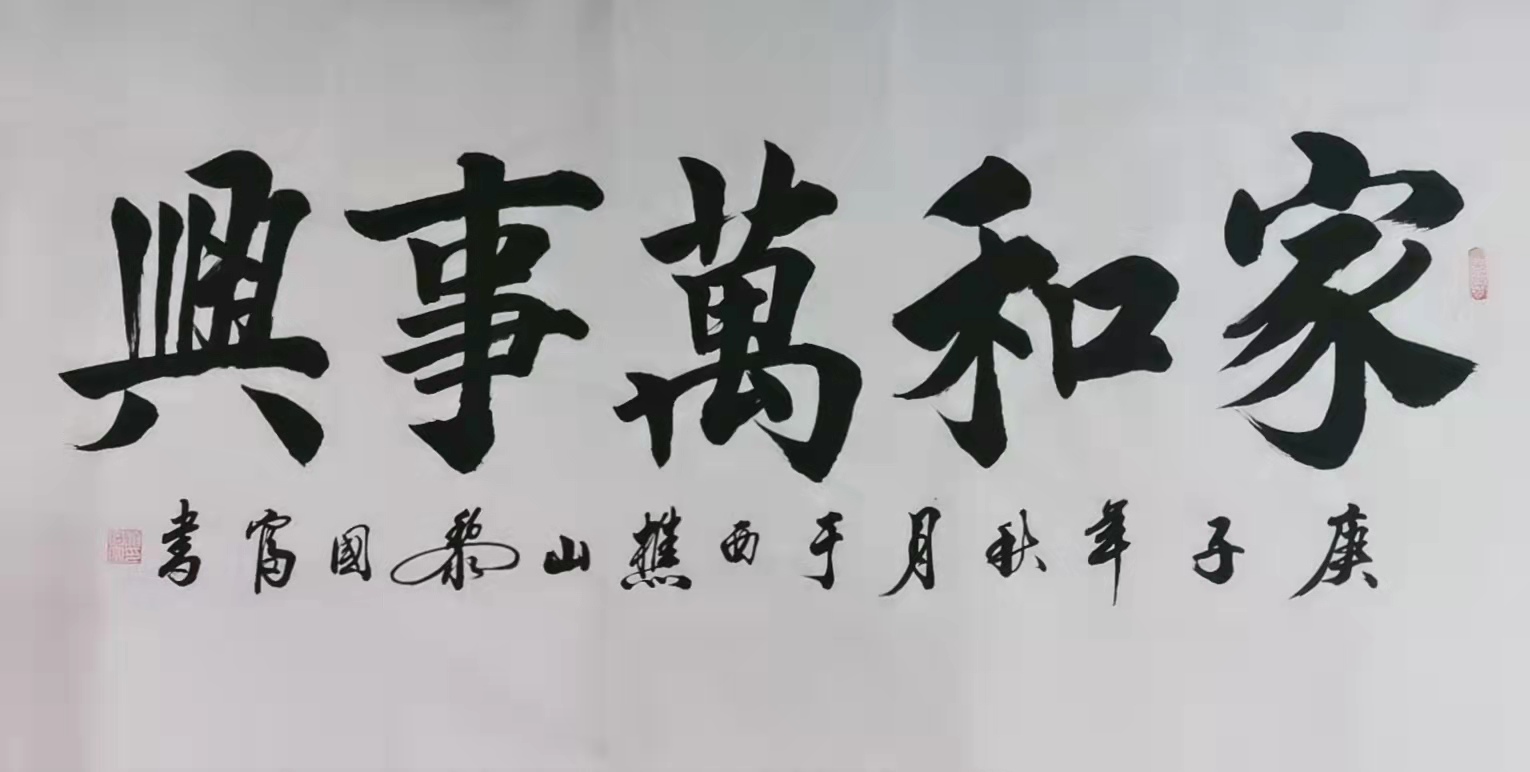 家和萬事興
庚子年秋月于西樵山黎國富書